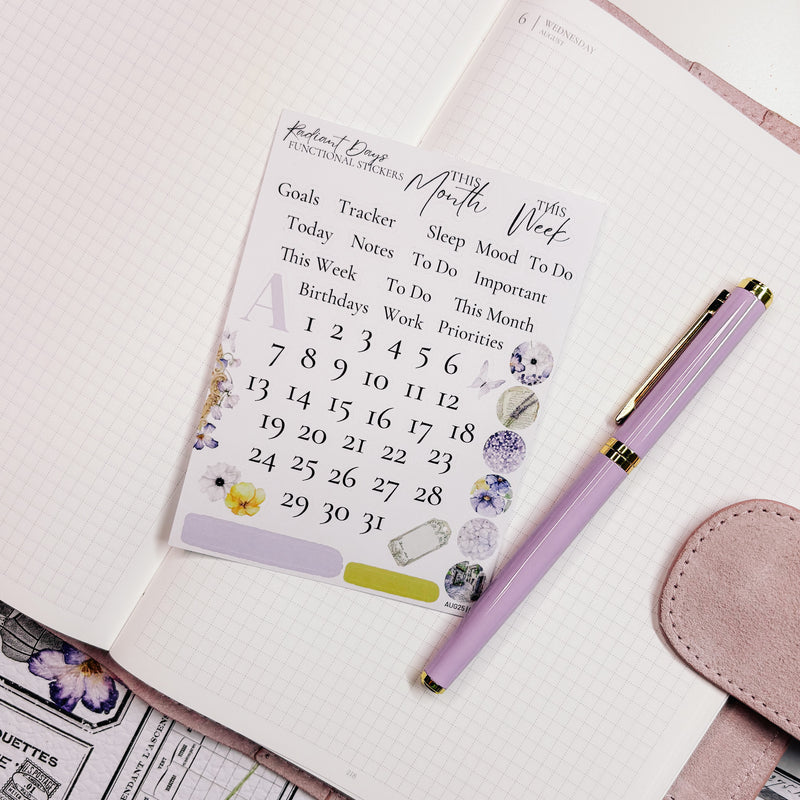 6 | WEDNESDAY
AUGUST
Radiant Days
FUNCTIONAL STICKERS
THIS
Month
THIS
Week
Goals Tracker Sleep Mood To Do
Today Notes To Do Important
This Week To Do This Month
Birthdays Work Priorities
A
1 2 3 4 5 6
7 8 9 10 11 12
13 14 15 16 17 18
19 20 21 22 23
24 25 26 27 28
29 30 31
AUG25
218